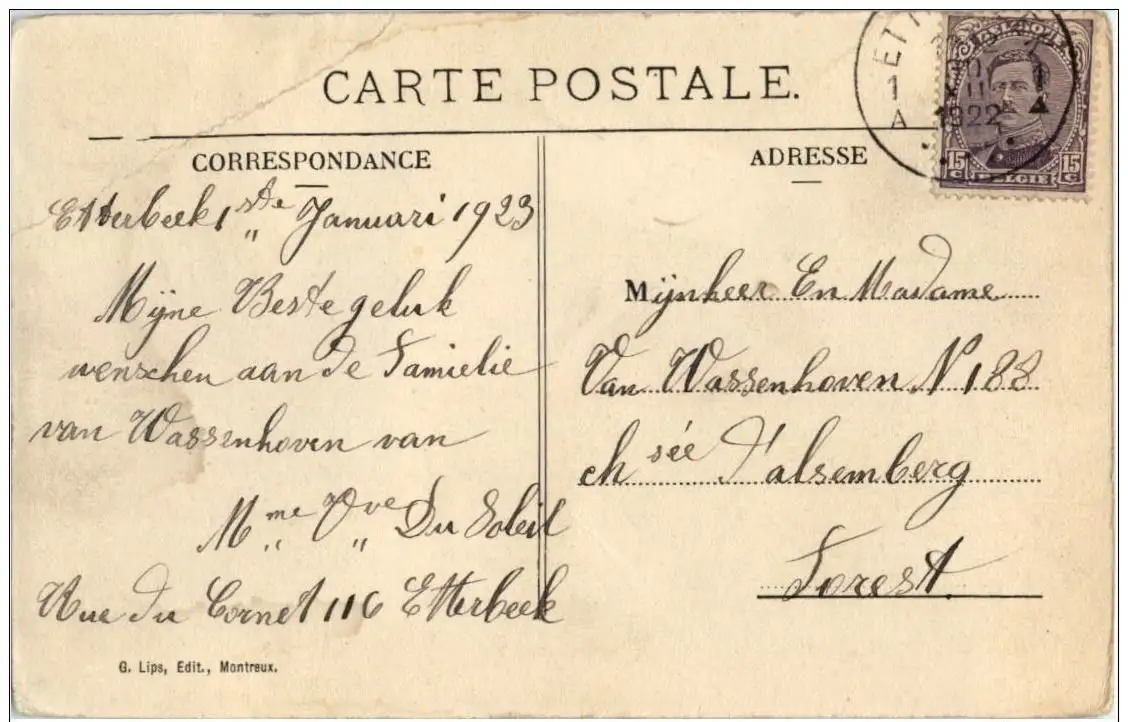 CARTE POSTALE.
CORRESPONDANCE
Etterbeek 1ste Januari 1923
Mijne Beste geluk
wenschen aan de Familie
van Wassenhoven van
Mme Vve Du Soleil
Rue du Cornet 116 Etterbeek
G. Lips, Edit., Montreux.
ADRESSE
Mijnheer En Madame
Van Wassenhoven N 188
chsée d'alsemberg
Forest.
1 1
A 1922 A
BELGIQUE
15 C 15 C
BELGIE